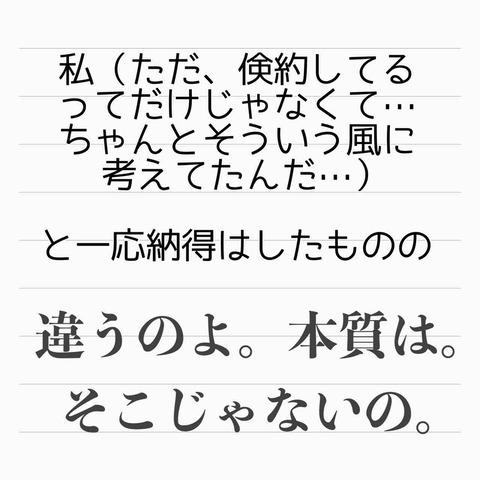 私（ただ、倹約してる
ってだけじゃなくて…
ちゃんとそういう風に
考えてたんだ…）
と一応納得はしたものの
違うのよ。本質は。
そこじゃないの。